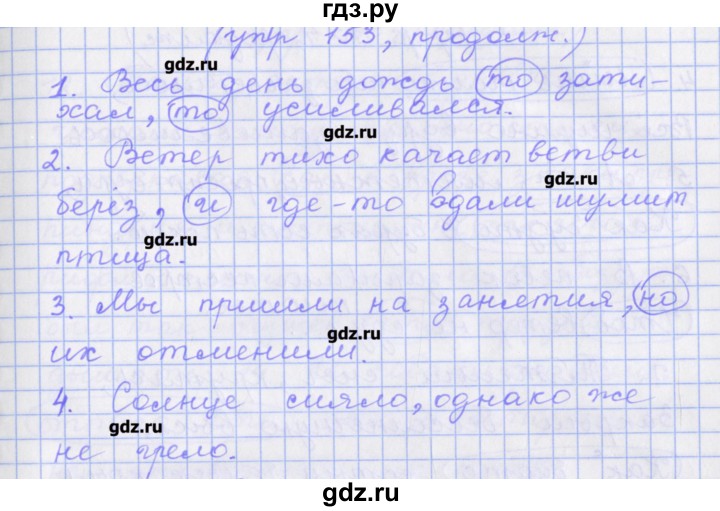 гдз.ру
(упр 153, продолж.)
gdz.ru
1. Весь день дождь то зати-
хал, то усиливался.
gdz.ru
2. Ветер тихо качает ветви
gdz.ru
берёз, и где-то вдали шумит
gdz.ru
птица.
3. Мы пришли на занятия, но
gdz.ru
их отменили.
4. Солнце сияло, однако же
gdz.ru
не грело.
gdz.ru